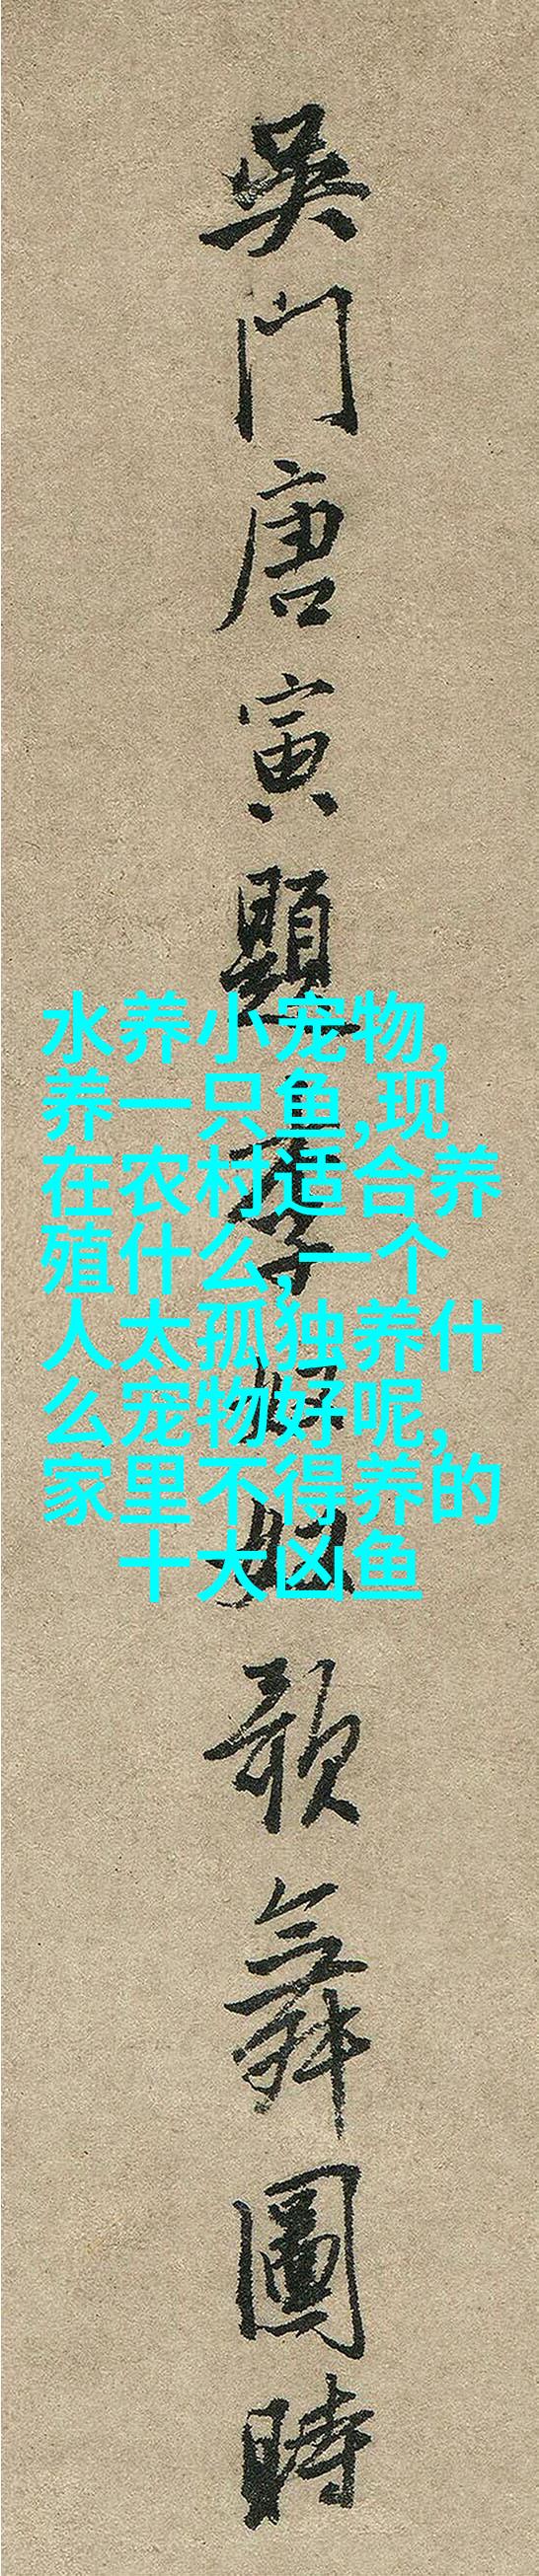 吳門唐寅題李奴奴歌舞圖時
水养小宠物,
养一只鱼,现
在农村适合养
殖什么,一个
人太孤独养什
么宠物好呢,
家里不得养的
十大凶鱼